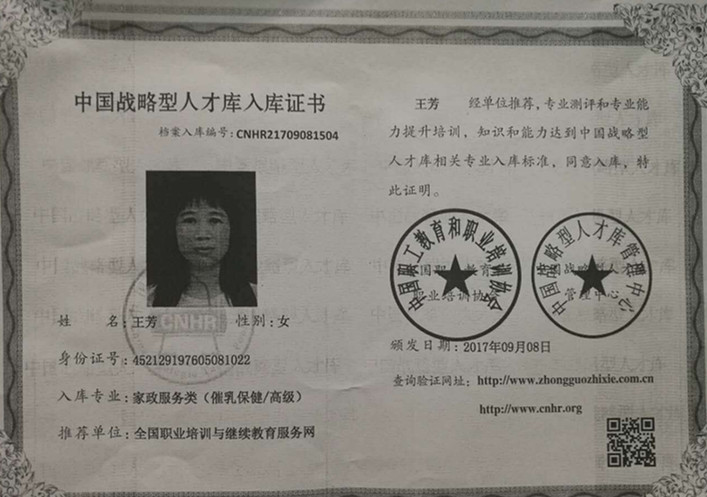 中国战略型人才库入库证书
档案入库编号：CNHR21709081504
CNHR
姓 名：王芳 性别：女
身份证号：452129197605081022
入库专业：家政服务类（催乳保健/高级）
推荐单位：全国职业培训与继续教育服务网
王芳 经单位推荐，专业测评和专业能
力提升培训，知识和能力达到中国战略型
人才库相关专业入库标准，同意入库，特
此证明。
中国职工教育和职业培训协会
中国战略型人才库管理中心
颁发日期：2017年09月08日
查询验证网址：http://www.zhongguozhixie.com.cn
http://www.cnhr.org